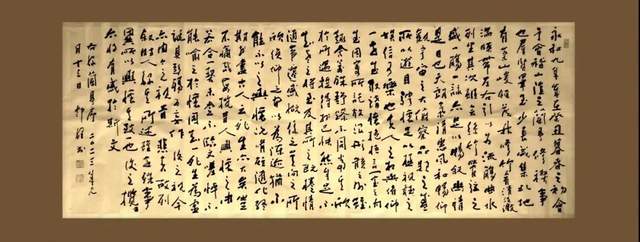 永和九年歲在癸丑暮春之初會
于會稽山陰之蘭亭修禊事
也群賢畢至少長咸集此地
有崇山峻嶺茂林修竹又有清流激
湍映帶左右引以為流觴曲水
列坐其次雖無絲竹管弦之
盛一觴一詠亦足以暢敘幽情
是日也天朗氣清惠風和暢仰
觀宇宙之大俯察品類之盛
所以遊目騁懷足以極視聽之
娛信可樂也夫人之相與俯仰
一世或取諸懷抱悟言一室之內
或因寄所託放浪形骸之外雖
趣舍萬殊靜躁不同當其欣
於所遇暫得於己快然自足不知
老之將至及其所之既倦情
隨事遷感慨係之矣向之所
欣俛仰之間以為陳跡猶不
能不以之興懷況修短隨化終
期於盡古人云死生亦大矣豈
不痛哉每攬昔人興感之由
若合一契未嘗不臨文嗟悼不
能喻之於懷固知一死生為虛
誕齊彭殤為妄作後之視今
亦由今之視昔悲夫故列
敘時人錄其所述雖世殊事
異所以興懷其致一也後之攬
者亦將有感於斯文
蘭亭序 二〇二三年元
月十三日 書